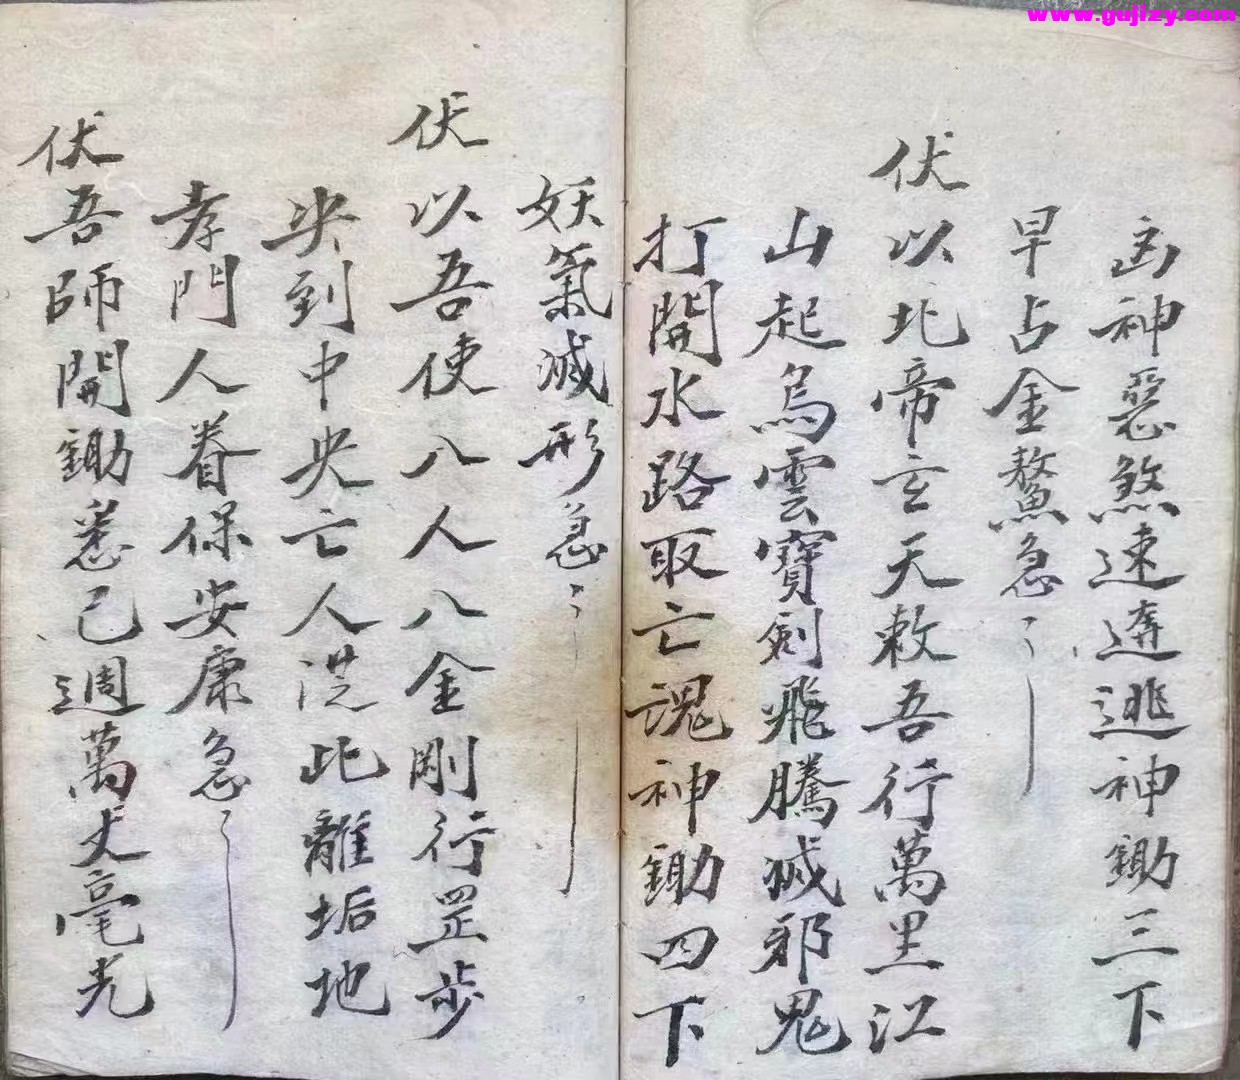 www.gujizy.com
凶神惡煞速遠逃神鋤三下
早占金鰲急〻
伏以北帝玄天敕吾行萬里江
山起烏雲寶劍飛騰滅邪鬼
打開水路取亡魂神鋤四下
妖氣滅形急〻
伏以吾使八人八金剛行罡步
央到中央亡人洗此離垢地
孝門人眷保安康急〻
伏吾師開鋤悉已週萬丈毫光